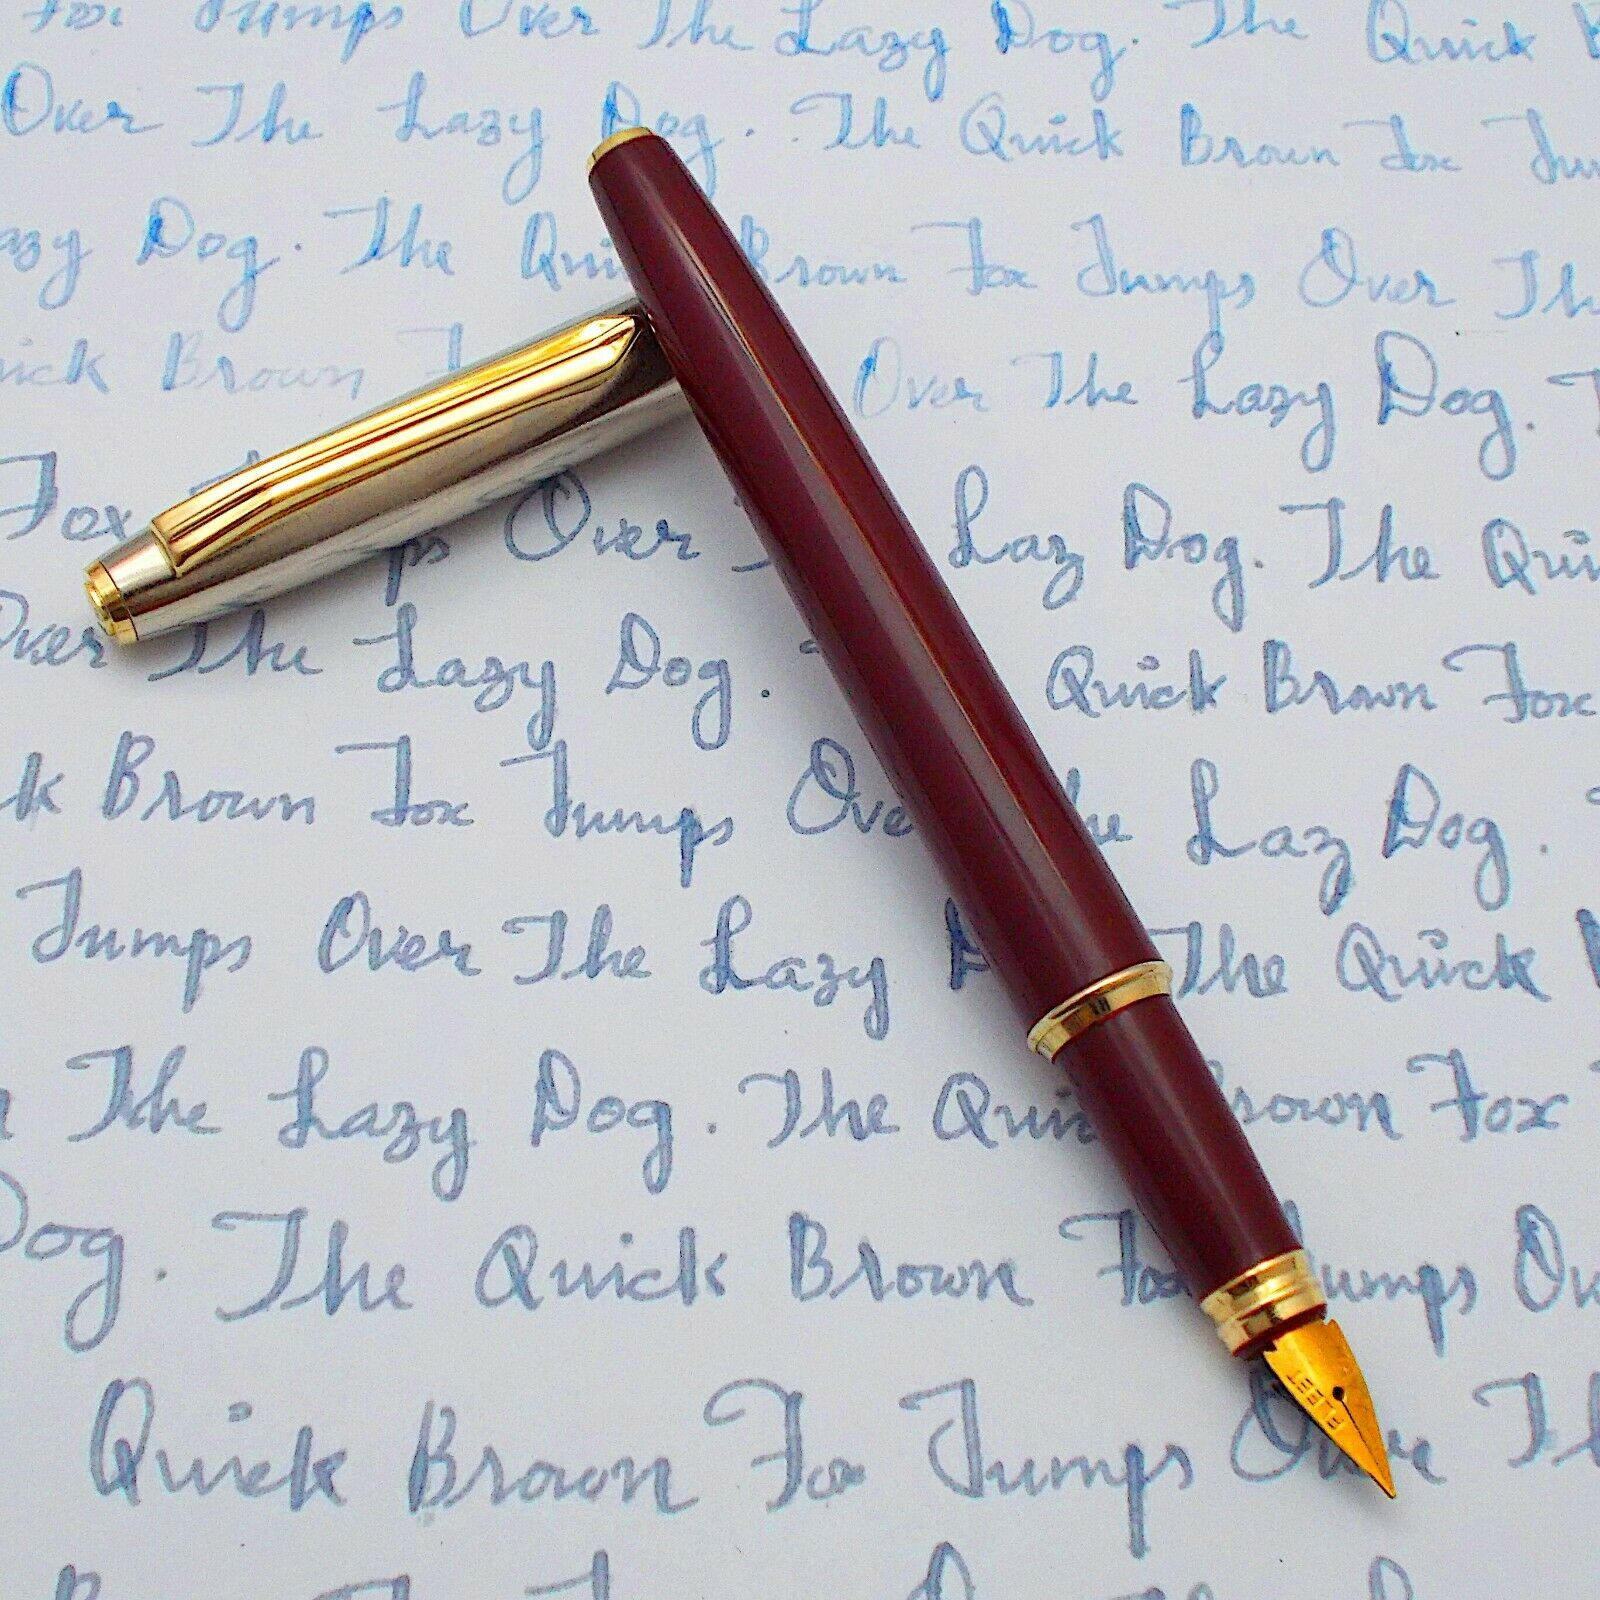 Fox Jumps Over The Lazy Dog. The Quick
Over The Lazy Dog. The Quick Brown Fox
Dog. The Brown Fox Jumps Over The
Brown Over The Lazy Dog.
Fox Over Laz Dog. The
Over The Lazy Dog. Quick Brown Fox
Brown Fox Jumps Laz Dog.
Jumps Over The Lazy The Quick
The Lazy Dog. The Fox
Dog. The Quick Brown
Quick Brown Fox Jumps Over
FLEET